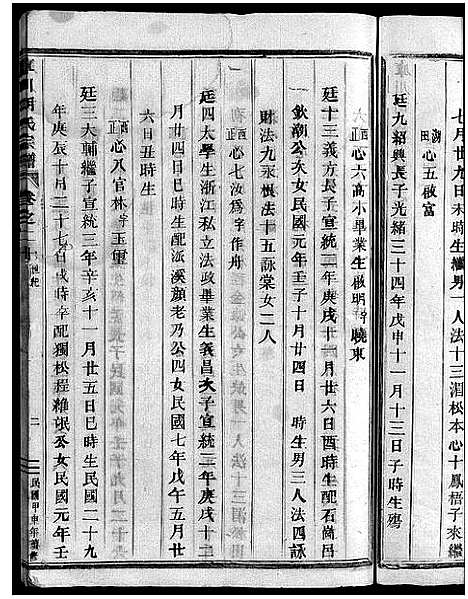 七月廿九日未時生繼男一人法十三湄松本心十鳳梧子來繼
湖田 心五啟富
廷九紹興長子光緒三十四年戊申十一月十三日子時生殤
酉正 心六高小畢業生啟明字曉東
廷十三義方長子宣統二年庚戌十一月廿六日酉時生配石崗呂
欽潮公次女民國元年壬子十月廿四日 時生男三人法四詠
財法九永悵法十五詠棠女二人
酉正 心七汝為字作舟
廷四太學生浙江私立法政畢業生義昌次子宣統二年庚戌十二
月廿四日巳時生配派溪顏老乃公四女民國七年戊午五月廿
六日丑時生
酉正 心八官林字玉軍
廷三大輔繼子宣統三年辛亥十一月廿五日巳時生民國二十九
年庚辰十月二十七日戌時卒配獨松程維氓公女民國元年壬
胡氏宗譜 卷之二
二
民國甲申年